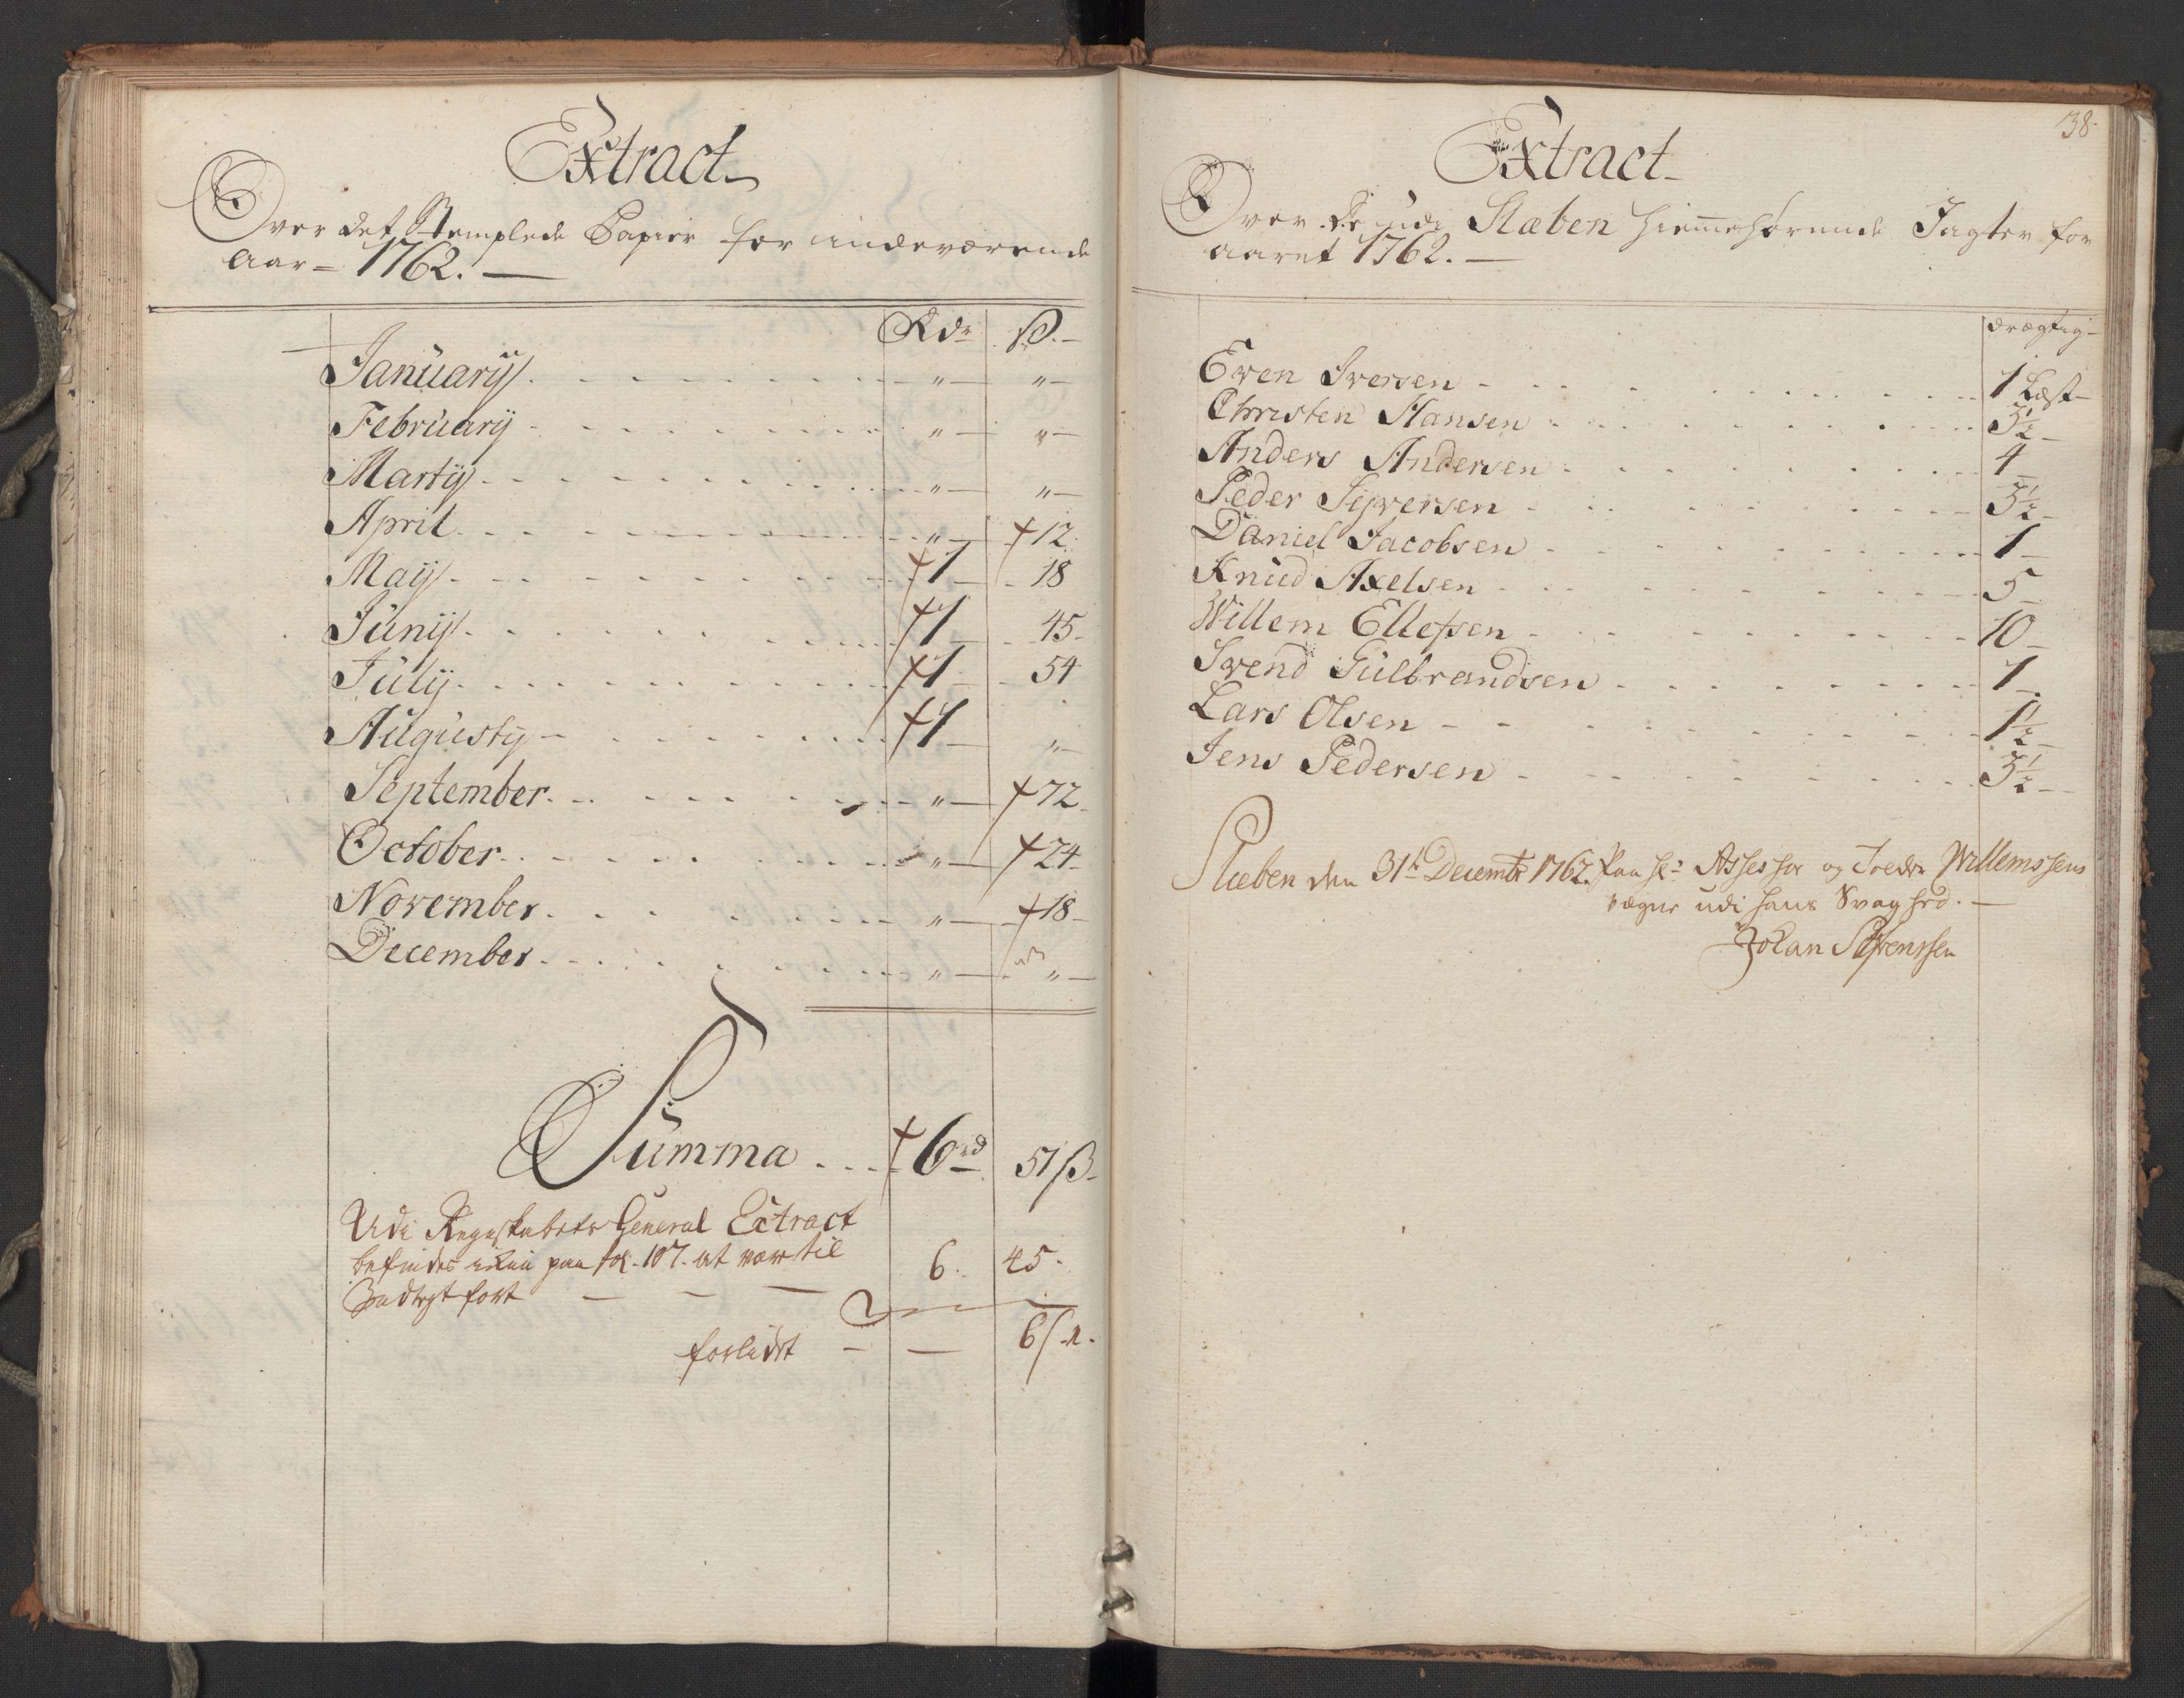 Extract
Over det Stemplede Papiir for indeværende
Aar = 1762. —
Rdr ß.
Januarij " "
February " "
Martij " "
April " 12
Maij 1 18
Junij 1 45
Julij 1 54
Augustij 1 "
September " 72
October " 24
November " 18
December " "
Summa 6 rd 51 ß
Udi Regnskabets General Extract
befindes paa fol. 107. at være til
fort 6. 45.
6 ß
138.
Extract
Over de udi Slæben hiemmehørende Jagter for
Aaret 1762. —
drægtig
Even Iversen 1 Læst
Christen Hansen 3½
Anders Andersen 4
Peder Sijversen 3½
Daniel Jacobsen 1
Knud Axelsen 5
Willem Ellefsen 10
Svend Gulbrandsen 1
Lars Olsen 1½
Jens Pedersen 3½
Slæben den 31te Decembr 1762. Paa Hr Assessor og Tolder Willemssens
vegne udi hans Svaghed. —
Johan